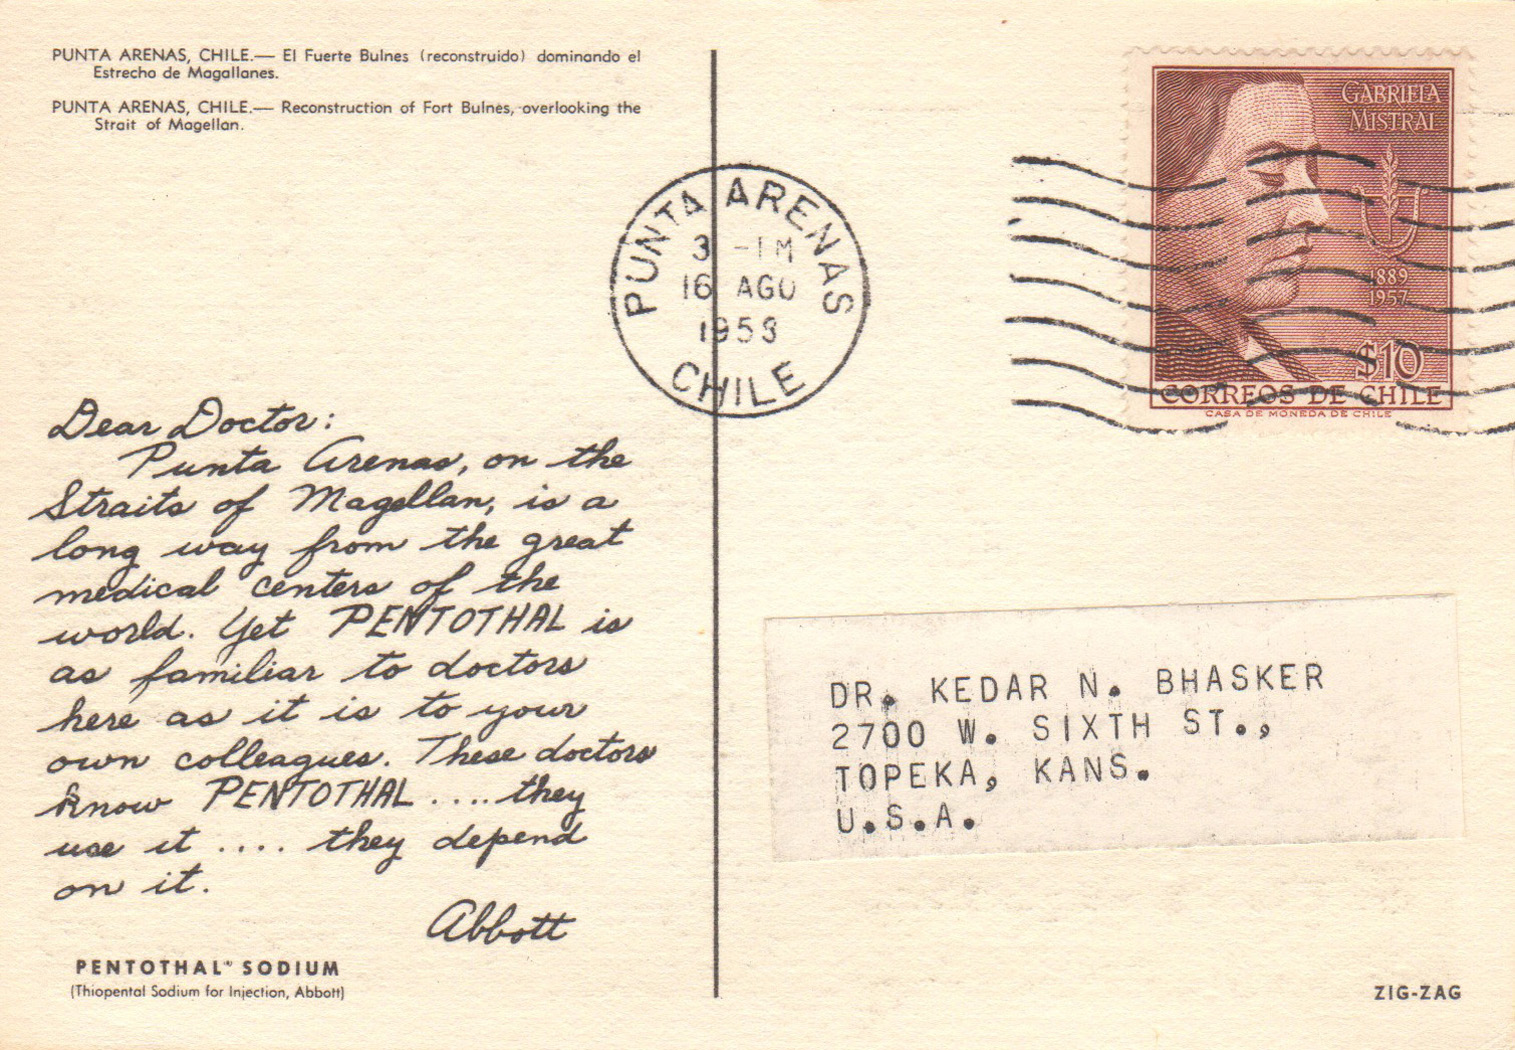 PUNTA ARENAS, CHILE.— El Fuerte Bulnes (reconstruido) dominando el
Estrecho de Magallanes.
PUNTA ARENAS, CHILE.— Reconstruction of Fort Bulnes, overlooking the
Strait of Magellan.
Dear Doctor:
Punta Arenas, on the
Straits of Magellan, is a
long way from the great
medical centers of the
world. Yet PENTOTHAL is
as familiar to doctors
here as it is to your
own colleagues. These doctors
know PENTOTHAL .... they
use it .... they depend
on it.
Abbott
PENTOTHAL® SODIUM
(Thiopental Sodium for Injection, Abbott)
PUNTA ARENAS
3 -1M
16 AGO
1958
CHILE
GABRIELA
MISTRAL
1889
1957
$10
CORREOS DE CHILE
CASA DE MONEDA DE CHILE
DR. KEDAR N. BHASKER
2700 W. SIXTH ST.,
TOPEKA, KANS.
U.S.A.
ZIG-ZAG